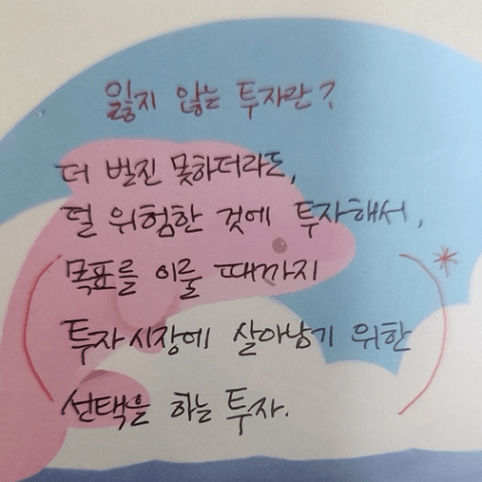 잃지 않는 투자란?
더 벌진 못하더라도,
덜 위험한 것에 투자해서,
(목표를 이룰 때까지 *
투자시장에 살아남기 위한
선택을 하는 투자.)